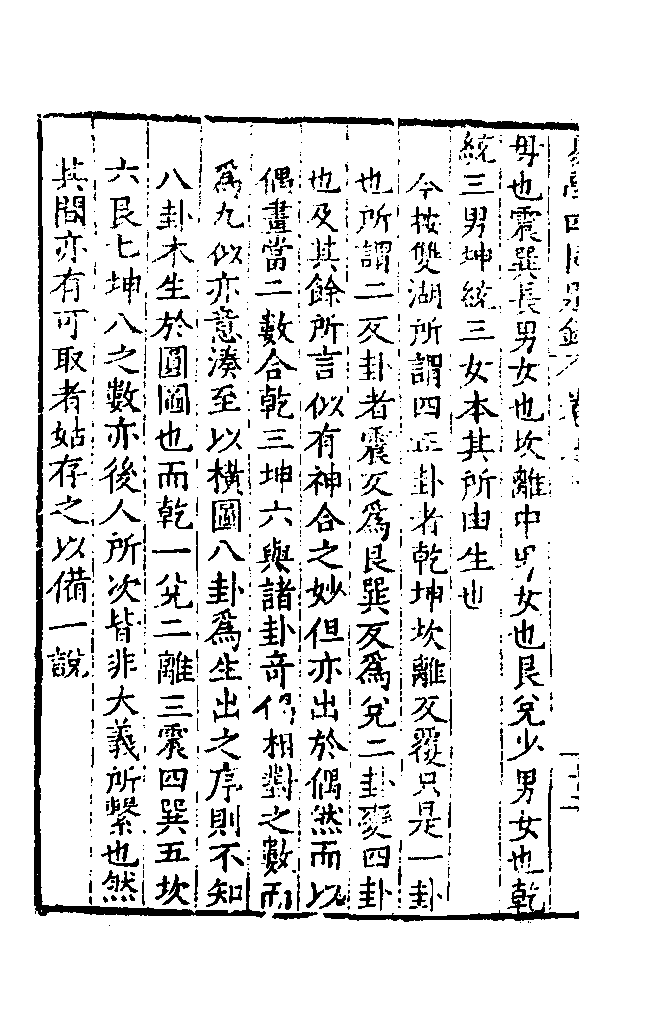 易學四同別錄 卷之
毋也震巽長男女也坎離中男女也艮兌少男女也乾
統三男坤統三女本其所由生也
今按雙湖所謂四正卦者乾坤坎離反覆只是一卦
也所謂二反卦者震反爲艮巽反爲兌二卦變四卦
也及其餘所言似有神合之妙但亦出於偶然而以
偶畫當二數合乾三坤六與諸卦奇偶相對之數而
爲九似亦意湊至以橫圖八卦爲生出之序則不知
八卦本生於圓圖也而乾一兌二離三震四巽五坎
六艮七坤八之數亦後人所次皆非大義所繫也然
其間亦有可取者姑存之以備一說